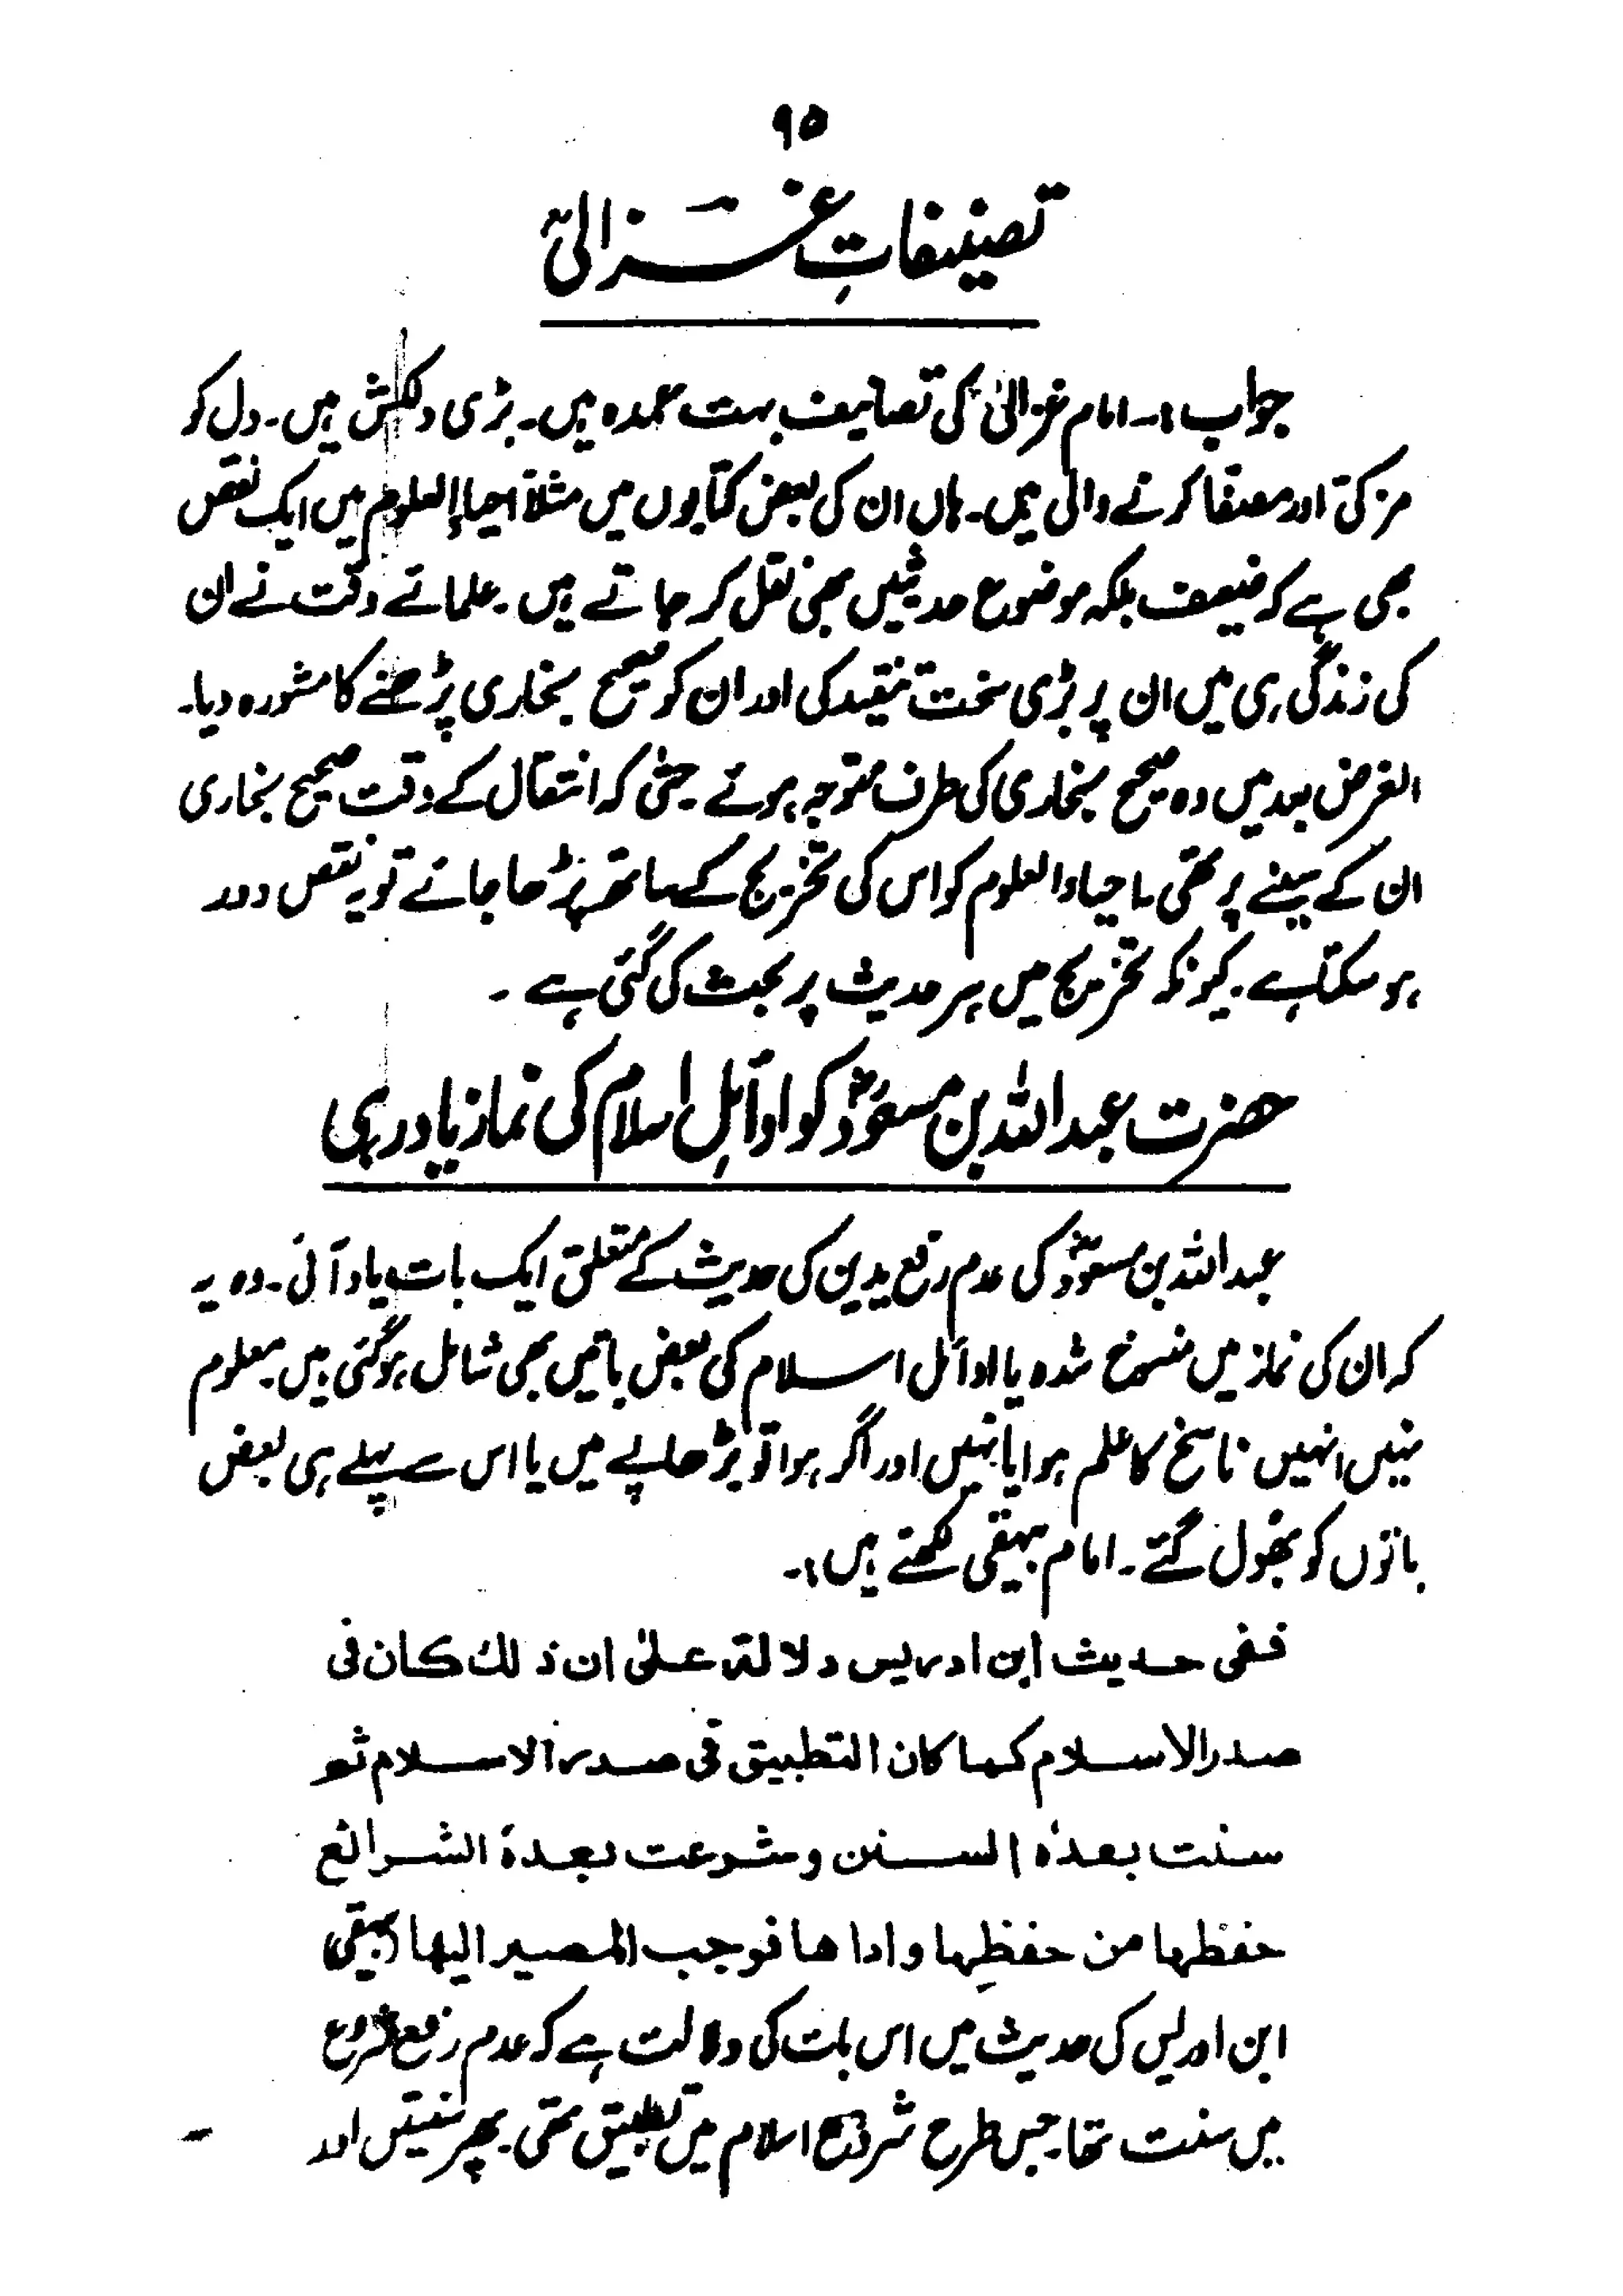 ۹۵
تصنیفاتِ غزالیؒ
جواب :۔ امام غزالیؒ کی تصانیف بہت عمدہ ہیں۔ بڑی دلکش ہیں۔ دل کو
مزکّیٰ اور مصفّا کرنے والی ہیں۔ ہاں ان کی بعض کتابوں میں مثلاً احیاء العلوم میں ایک نقص
بھی ہے کہ ضعیف بلکہ موضوع حدیثیں بھی نقل کر جاتے ہیں۔ علمائے وقت نے ان
کی زندگی ہی میں ان پر بڑی سخت تنقید کی اور ان کو صحیح بخاری پڑھنے کا مشورہ دیا۔
الغرض بعد میں وہ صحیح بخاری کی طرف متوجہ ہوئے حتیٰ کہ انتقال کے وقت صحیح بخاری
ان کے سینے پر تھی۔ احیاء العلوم کو اس کی تخریج کے ساتھ پڑھا جائے تو یہ نقص دور
ہو سکتا ہے۔ کیونکہ تخریج میں ہر حدیث پر بحث کی گئی ہے۔
حضرت عبداللہ بن مسعودؓ کو اوائلِ اسلام کی نماز یاد رہی
عبداللہ بن مسعودؓ کی عدم رفع یدین کی حدیث کے متعلق ایک بات یاد آئی۔ وہ یہ
کہ ان کی نماز میں منسوخ شدہ یا اوائل اسلام کی بعض باتیں بھی شامل ہوگئی ہیں۔ معلوم
نہیں انہیں ناسخ کا علم ہوا یا نہیں اور اگر ہوا تو بڑھاپے میں یا اس سے پہلے ہی بعض
باتوں کو بھول گئے۔ امام بیہقی لکھتے ہیں:۔
ففی حدیث ابن ادریس دلالۃ علیٰ ان ذلک کان فی
صدر الاسلام کما کان التطبیق فی صدر الاسلام ثم
سنت بعدہٗ السنن وشرعت بعدہٗ الشرائع
حفظہا من حفظہا واداھا فوجب المصیر الیہا (بیہقی)
ابن ادریس کی حدیث میں اس بات کی دلالت ہے کہ عدم رفع شروع
میں سنت تھا۔ جس طرح شروع اسلام میں تطبیق تھی۔ پھر سنتیں اور